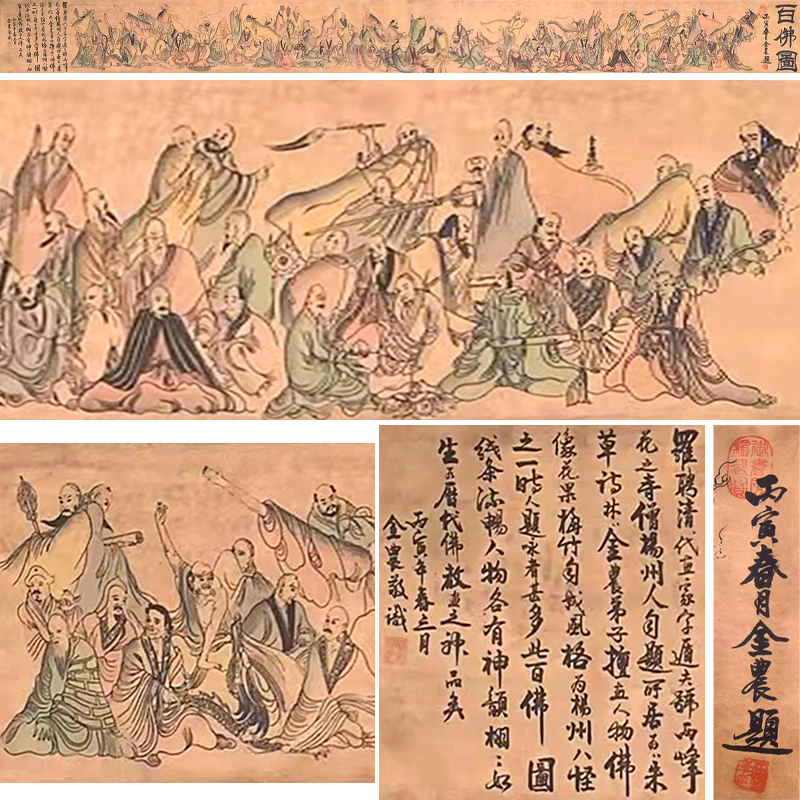 百佛圖
丙寅春月金農題
羅聘清代画家字遁夫號两峰
花之寺僧楊州人自題所居为朱
草詩林金農弟子擅画人物佛
像花果梅竹自成風格为楊州八怪
之一時人題咏者甚多此百佛圖
线条流暢人物各有神韻栩々如
生乃曆代佛教画之珎品矣
丙寅年春三月
金農敬識
丙寅春月金農題